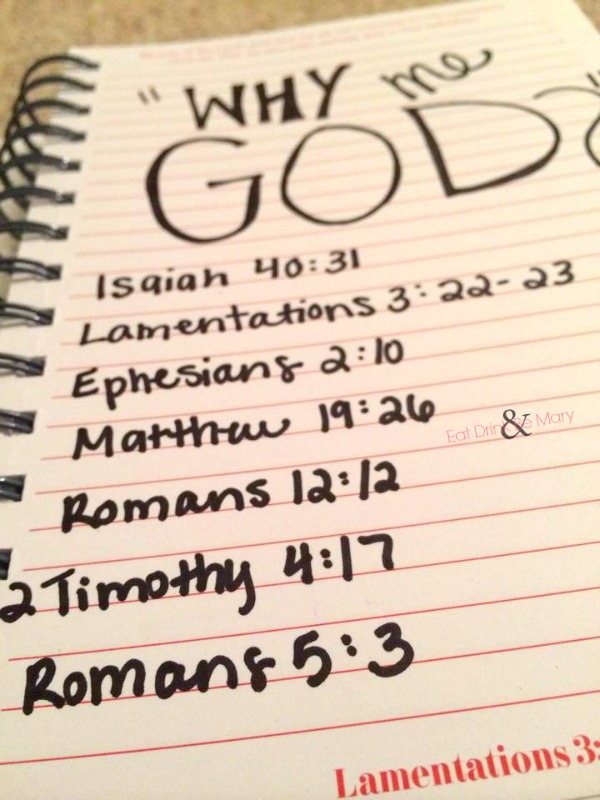 "WHY me
GOD?"
Isaiah 40:31
Lamentations 3:22-23
Ephesians 2:10
Matthew 19:26
Eat Drink & Be Mary
Romans 12:12
2 Timothy 4:17
Romans 5:3
Lamentations 3: